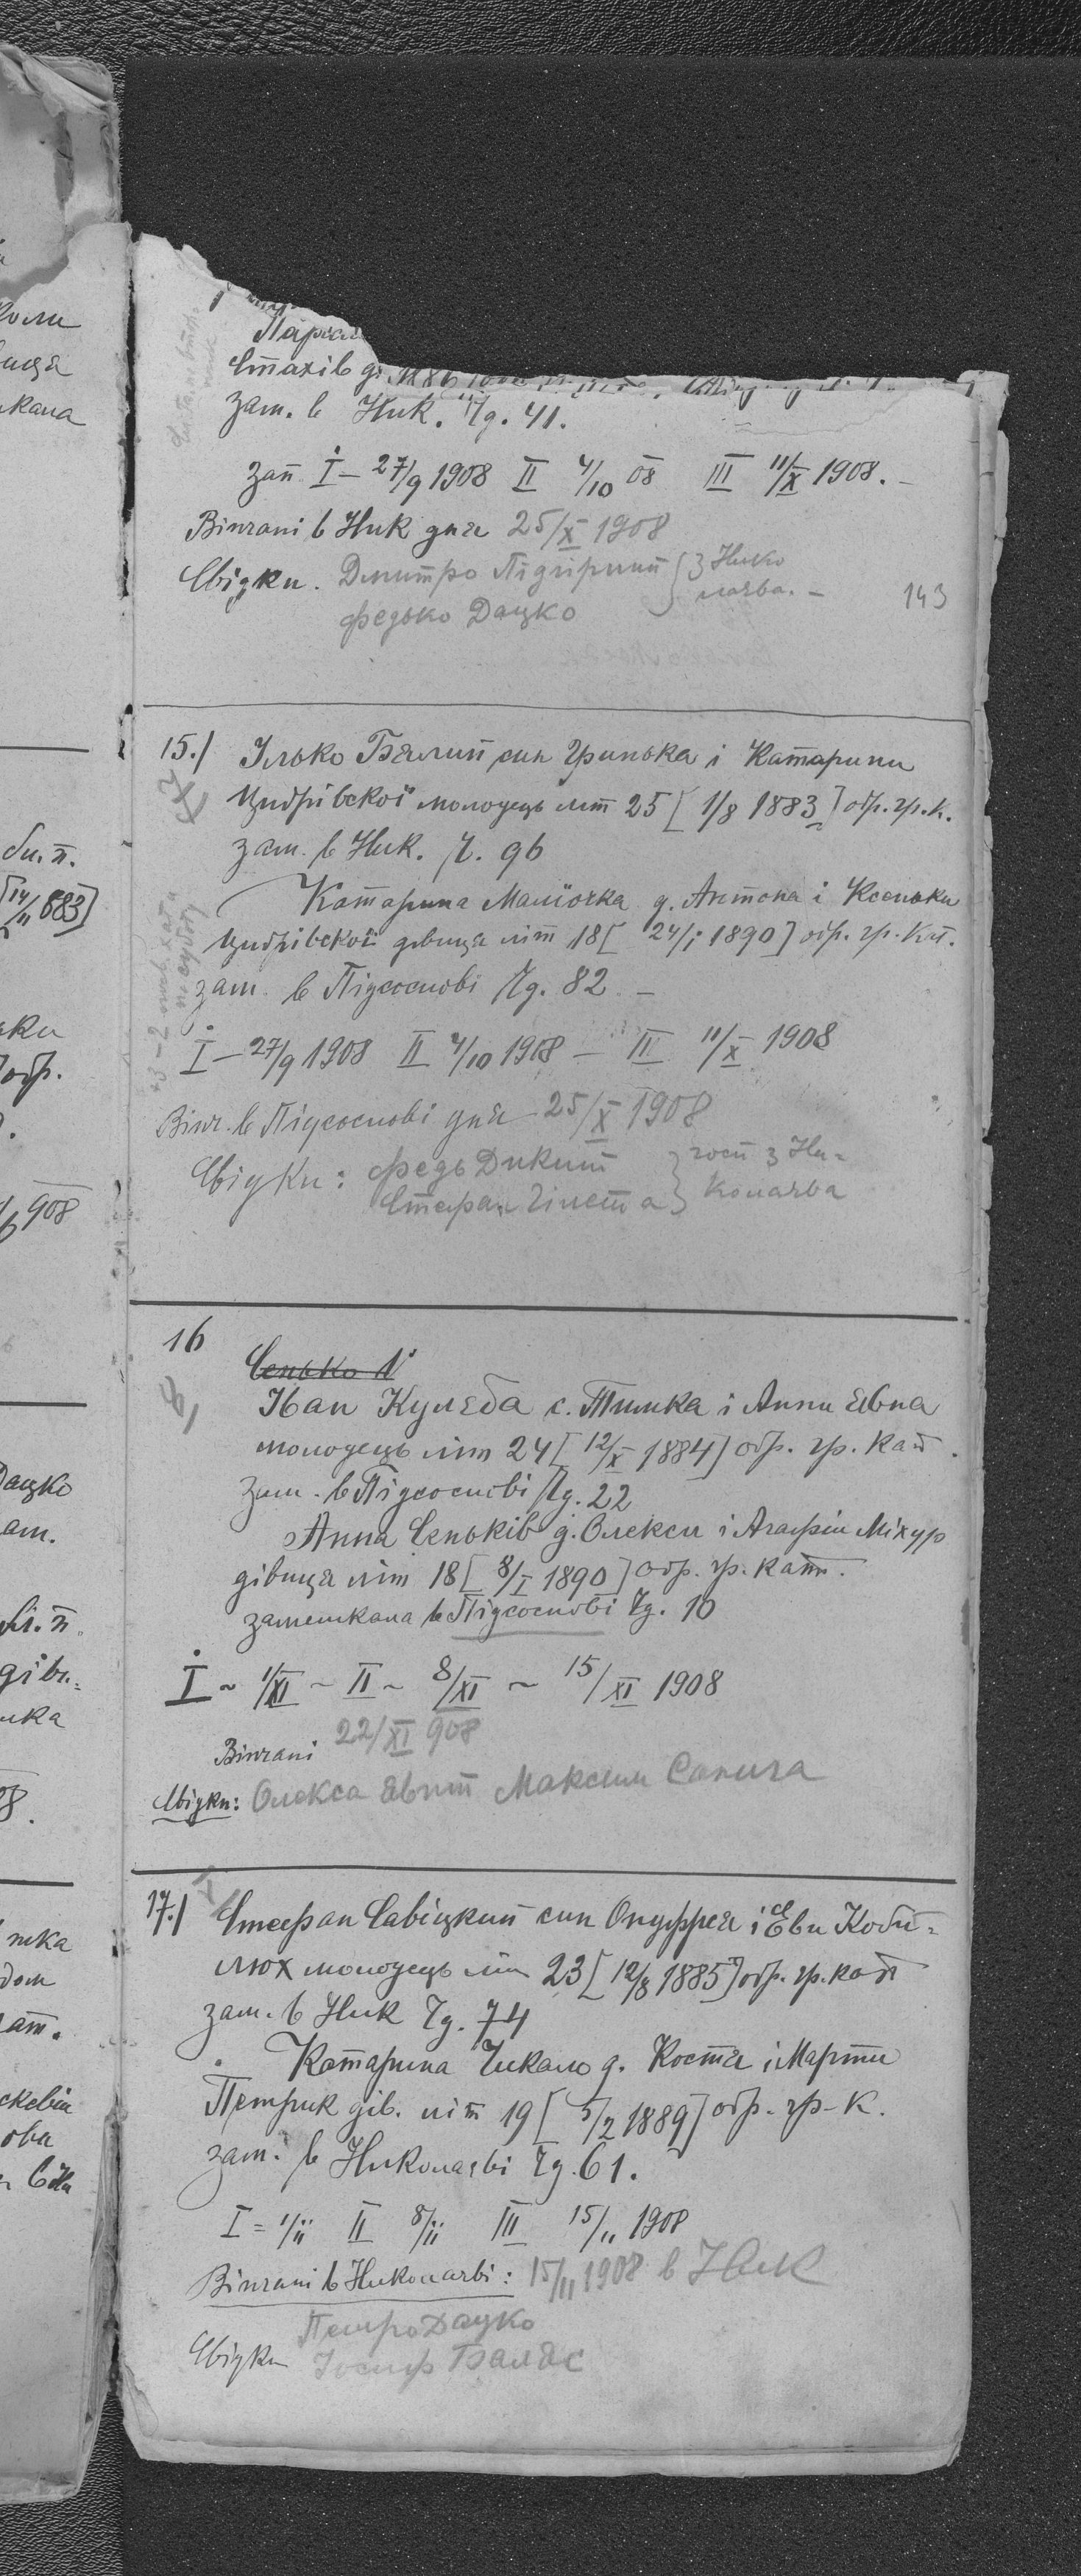 Стахів д.
зам. в Ник. Чд. 41.
зап. I – 27/9 1908 II 4/10 08 III 11/X 1908. –
Вінчані в Ник дня 25/X 1908
Свідки. Дмитро Підгірний } з Нико
федько Дацко } лаєва. –
143
15.) Ілько Бялий син Гринька і Катарини
Цидрівскої молодець літ 25 [ 1/8 1883 ] обр. гр. к.
зам. в Ник. Ч. 96
Катарина Маційчка д. Антона і Ксеньки
Цидрівскої дівиця літ 18 [ 24/i 1890 ] обр. гр. кат.
зам. в Підсоснові Чд. 82 –
I – 27/9 1908 II 4/10 1908 – III 11/X 1908
Вінч. в Підсоснові дня 25/X 1908
Свідки: федь Дикий } госп з Ни-
Стефан } колаєва
16
Сенько
Іван Кулєба с. Тимка і Анни Євна
молодець літ 24 [ 12/X 1884 ] обр. гр. кат.
зам. в Підсоснові Чд. 22
Анна Сеньків д. Олекси і Агафії Міхур
дівиця літ 18 [ 8/I 1890 ] обр. гр. кат.
замешкана в Підсоснові Чд. 10
I ~ 1/XI ~ II ~ 8/XI ~ 15/XI 1908
Вінчані 22/XI 908
Свідки: Олекса Євчит Максим Сапига
17.) Стефан Савіцкий син Онуфрея і Еви Коби-
люх молодець літ 23 [ 12/8 1885 ] обр. гр. кат
зам. в Ник Чд. 74
Катарина Чикало д. Костя і Марти
Петрик дів. літ 19 [ 5/2 1889 ] обр. гр. к.
зам. в Николаєві Чд. 61.
I = 1/ii II 8/ii III 15/11 1908
Вінчані в Николаєві: 15/11 1908 в Ник
Петро Дацко
Свідки Іосиф Балдс